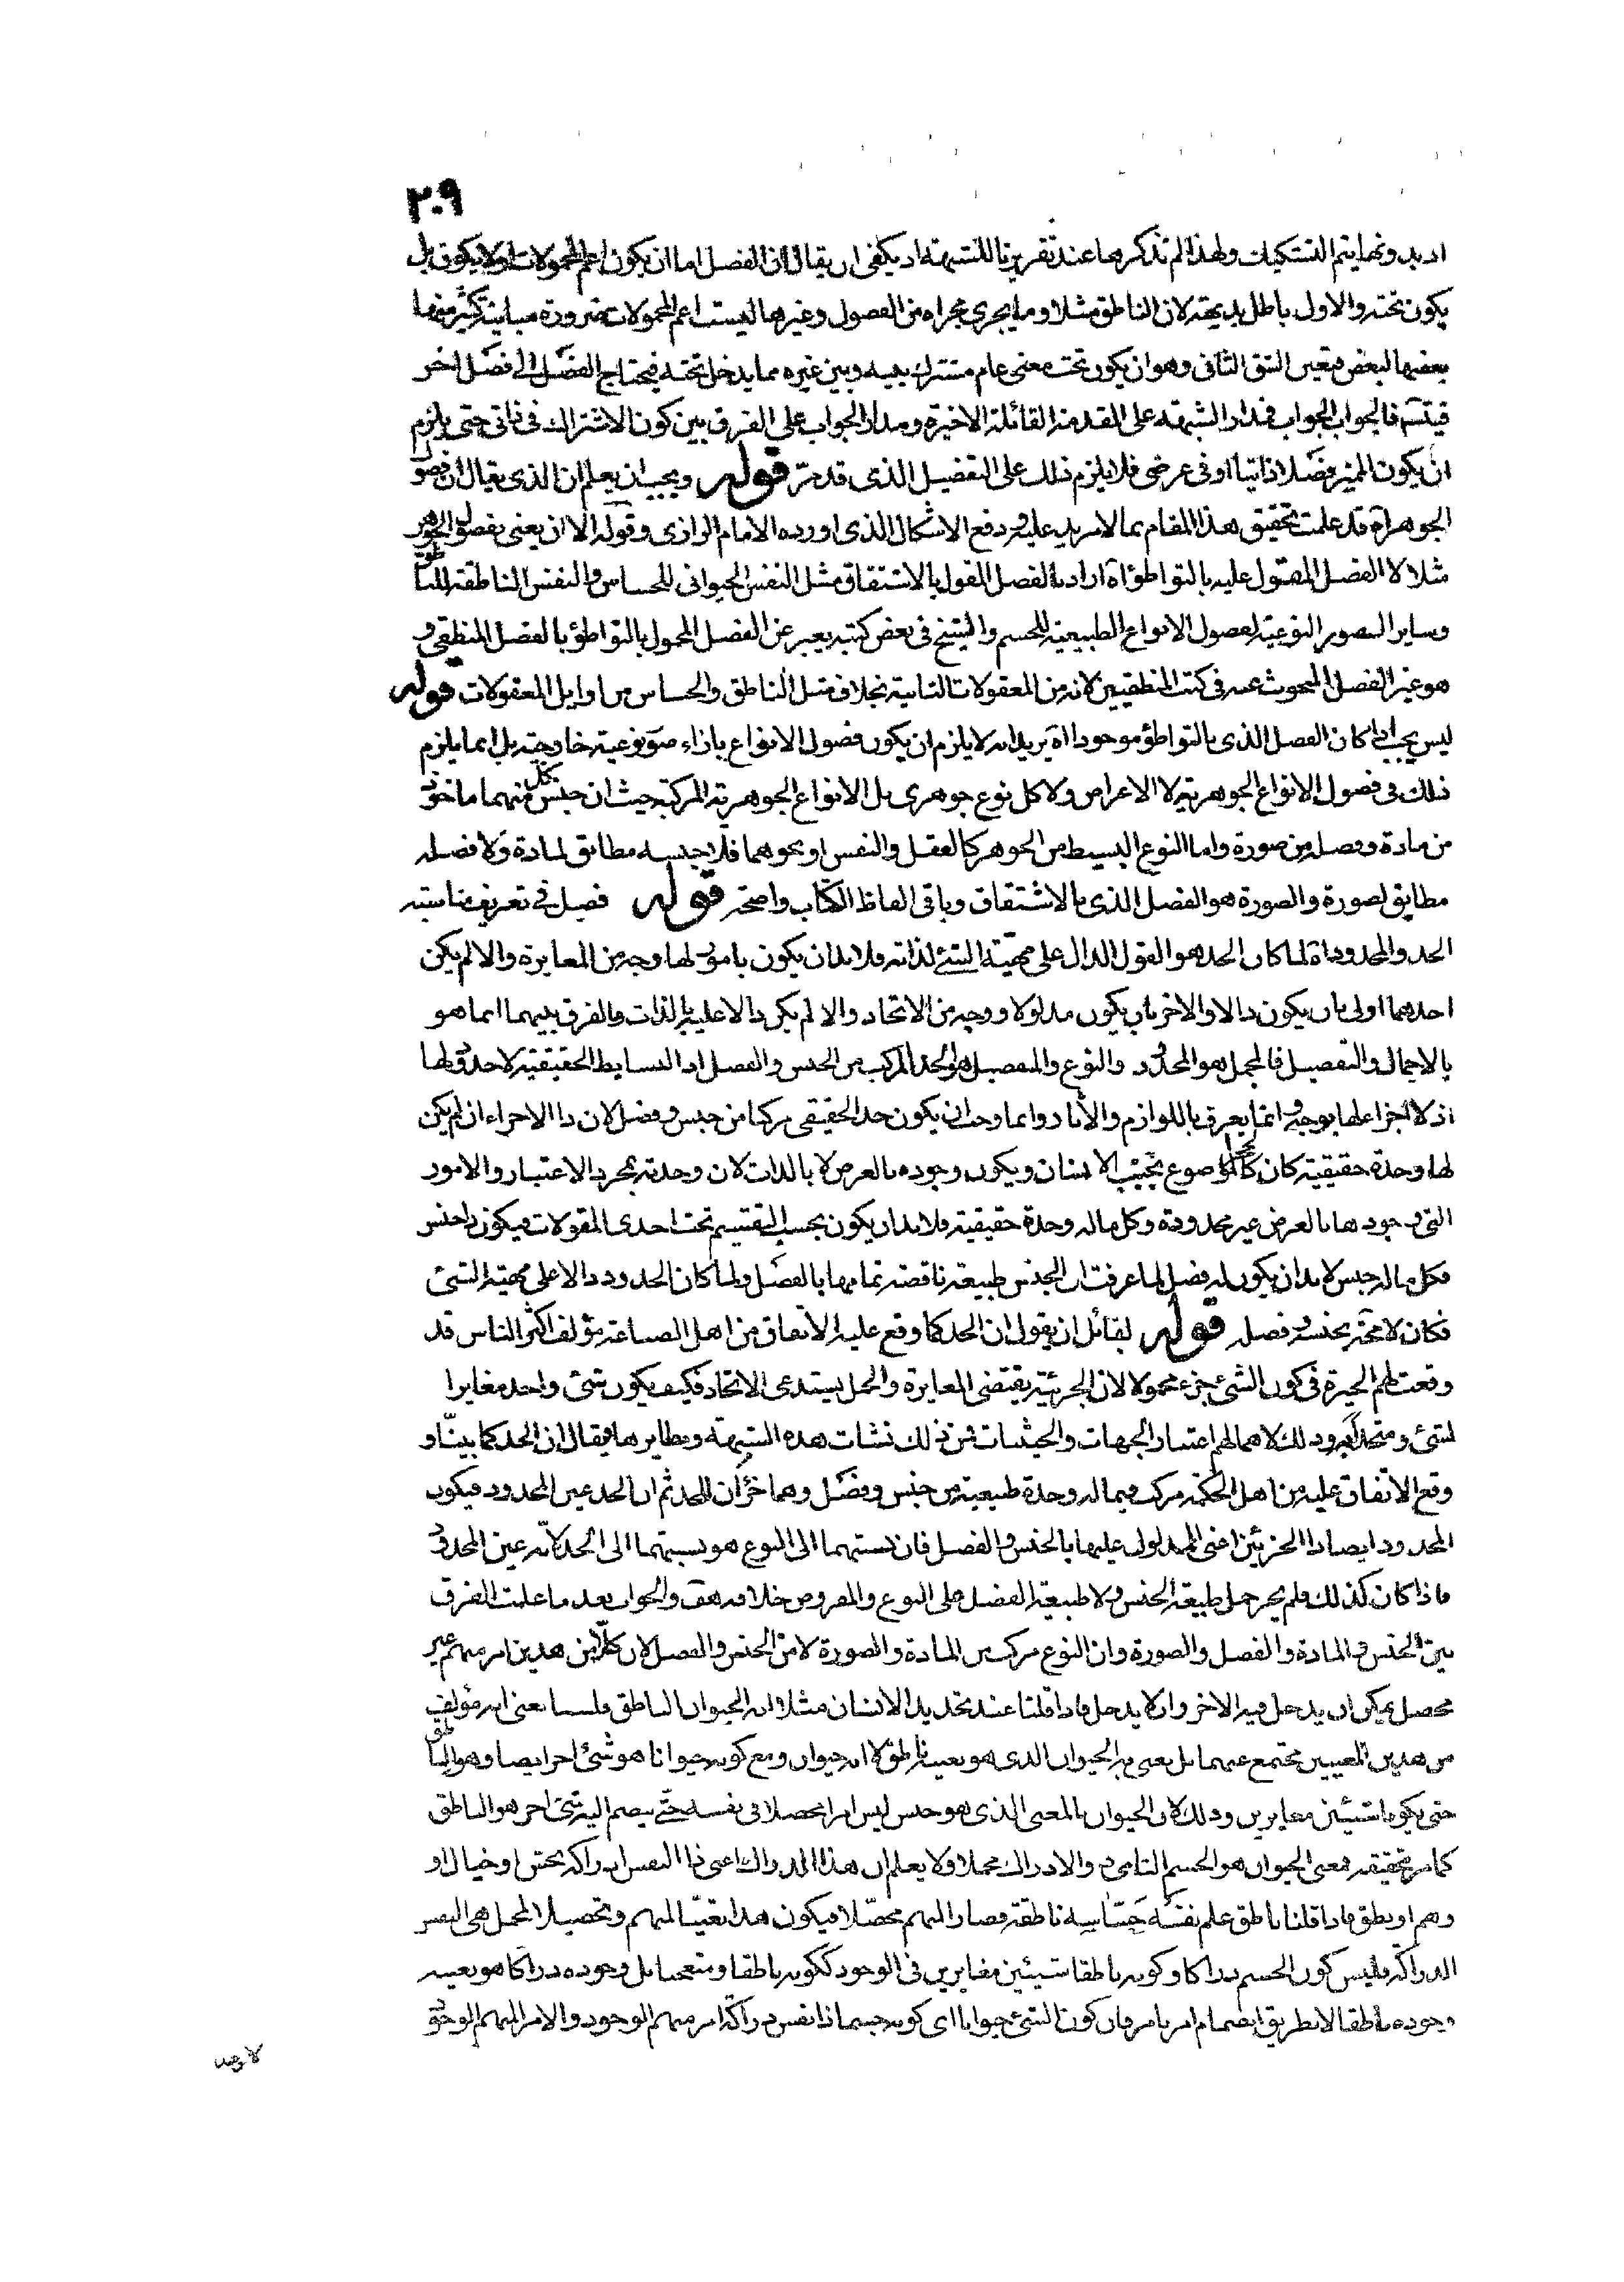 ٢٠٩
اذ بدونها يتم التشكيك ولهذا لم نذكرها عند تقريرنا للشبهة اذ يكفى ان يقال ان الفصل اما ان يكون اعم المحمولات او لا يكون بل
يكون تحته والاول باطل بديهة لان الناطق مثلا وما يجرى مجراه من الفصول وغيرها ليست اعم المحمولات ضرورة مباينة كثير منها
بعضها لبعض فتعين الشق الثانى وهو ان يكون تحت معنى عام مشترك بينه وبين غيره مما يدخل تحته فيحتاج الفصل الى فصل اخر
فيتسم فالجواب الجواب فمدار الشبهة على المقدمة القائلة الاخيرة ومدار الجواب على الفرق بين كون الاشتراك فى ذاتى حتى يلزم
ان يكون المميز فصلا ذاتيا او فى عرضى فلا يلزم ذلك على التفصيل الذى قد مر قوله ويجب ان يعلم ان الذى يقال ان فصول
الجوهر اه قد علمت تحقيق هذا المقام بما لا مزيد عليه ودفع الاشكال الذى اورده الامام الرازى وقوله الا ان يعنى بفصول الجوهر
مثلا لا الفصل المقول عليه بالتواطؤ اه اراد بالفصل المقول بالاشتقاق مثل النفس الحيوانى للحساس والنفس الناطقة للناطق
وساير الصور النوعية لفصول الانواع الطبيعية للجسم والشيخ فى بعض كتبه يعبر عن الفصل المحمول بالتواطؤ بالفصل المنطقى و
هو غير الفصل المبحوث عنه فى كتب المنطقيين لانه من المعقولات الثانية بخلاف مثل الناطق والحساس من اوايل المعقولات قوله
ليس يجب اذا كان الفصل الذى بالتواطؤ موجودا اه يريد انه لا يلزم ان يكون فصول الانواع بازاء صور نوعية خارجية بل انما يلزم
ذلك فى فصول الانواع الجوهرية لا الاعراض ولا كل نوع جوهرى بل الانواع الجوهرية المركبة حيث ان جنس كل منهما ماخوذ
من مادة وفصله من صورة واما النوع البسيط من الجوهر كالعقل والنفس او نحوهما فلا جنسه مطابق لمادة ولا فصله
مطابق لصورة والصورة هو الفصل الذى بالاشتقاق وباقى الفاظ الكتاب واضحة قوله فصل فى تعريف مناسبة
الحد والمحدود اه لما كان الحد هو القول الدال على مهية الشئ لذاته فلا بد ان يكون لها وجه من المغايرة والا لم يكن
احدهما اولى بان يكون دالا والاخر بان يكون مدلولا ووجه من الاتحاد والا لم يكن دالا عليه بالذات والفرق بينهما انما هو
بالاجمال والتفصيل فالمجمل هو المحدود والنوع والمفصل هو الحد المركب من الجنس والفصل اذ البسايط الحقيقية لا حد لها
اذ لا اجزاء لها بوجه وانما يعرف باللوازم والآثار وانما وجب ان يكون حد الحقيقى مركبا من جنس وفصل لان ذا الاجزاء ان لم يكن
لها وحدة حقيقية كان كالحجر الموضوع بجنب الانسان ويكون وجوده بالعرض لا بالذات لان وحدته بمجرد الاعتبار والامور
التى وجودها بالعرض غير محدودة وكل ما له وحدة حقيقية فلا بد ان يكون بحسب التقسيم تحت احدى المقولات فيكون ذا جنس
فكل ما له جنس لا بد ان يكون له فصل لما عرفت ان الجنس طبيعة ناقصة تمامها بالفصل ولما كان الحد دالا على مهية الشئ
فكان لا محة بجنسه وفصله قوله لقائل ان يقول ان الحد كما وقع عليه الاتفاق من اهل الصناعة مؤلف اكثر الناس قد
وقعت لهم الحيرة فى كون الشئ جزء محمولا لان الجزئية يقتضى المغايرة والحمل يستدعى الاتحاد فكيف يكون شئ واحد مغايرا
لشئ ومتحدا به وذلك لاهمالهم اعتبار الجهات والحيثيات فمن ذلك نشات هذه الشبهة ونظايرها فيقال ان الحد كما بينا و
وقع الاتفاق عليه من اهل الحكمة مركب فيما له وحدة طبيعية من جنس وفصل وهما جزآن للحد ثم ان الحد عين المحدود فيكون
المحدود ايضا ذا الجزئين اعنى المدلول عليها بالجنس والفصل فان نسبتهما الى النوع هو نسبتهما الى الحد لانه عين المحدود
فاذا كان كذلك فلم يجز حمل طبيعة الجنس ولا طبيعة الفصل على النوع والمفروض خلافه هف والجواب بعد ما علمت الفرق
بين الجنس والمادة والفصل والصورة وان النوع مركب من المادة والصورة لا من الجنس والفصل لان كلا من هذين امر مبهم غير
محصل يمكن ان يدخل فيه الاخر وان لا يدخل فاذا قلنا عند تحديد الانسان مثلا انه الحيوان الناطق فلسنا نعنى انه مؤلف
من هذين المعنيين مجتمع عنهما بل نعنى به الحيوان الذى هو بعينه ناطق لا انه حيوان ومع كونه حيوانا هو شئ اخر ايضا وهو الناطق
حتى يكونا شيئين مغايرين وذلك لان الحيوان بالمعنى الذى هو جنس ليس امرا محصلا فى نفسه حتى ينضم اليه شئ اخر هو الناطق
كما مر تحقيقه فمعنى الحيوان هو الجسم النامى ذو الادراك مجملا ولا يعلم ان هذا الدراك اعنى ذا النفس ادراكه بحس او خيال او
وهم او نطق فاذا قلنا ناطق علم نفسه حساسه ناطقة فصار المبهم محصلا فيكون هذا تعينا للمبهم وتحصيلا للمجمل هى النفس
الدراكة فليس كون الجسم دراكا وكونه ناطقا شيئين مغايرين فى الوجود ككونه ناطقا ومتعجبا بل وجوده دراكا هو بعينه
وجوده ناطقا لا بطريق انضمام امر بامر فان كون الشئ حيوانا اى كونه جسما ذا نفس دراكة امر مبهم الوجود والامر المبهم الوجود
لا يوجد